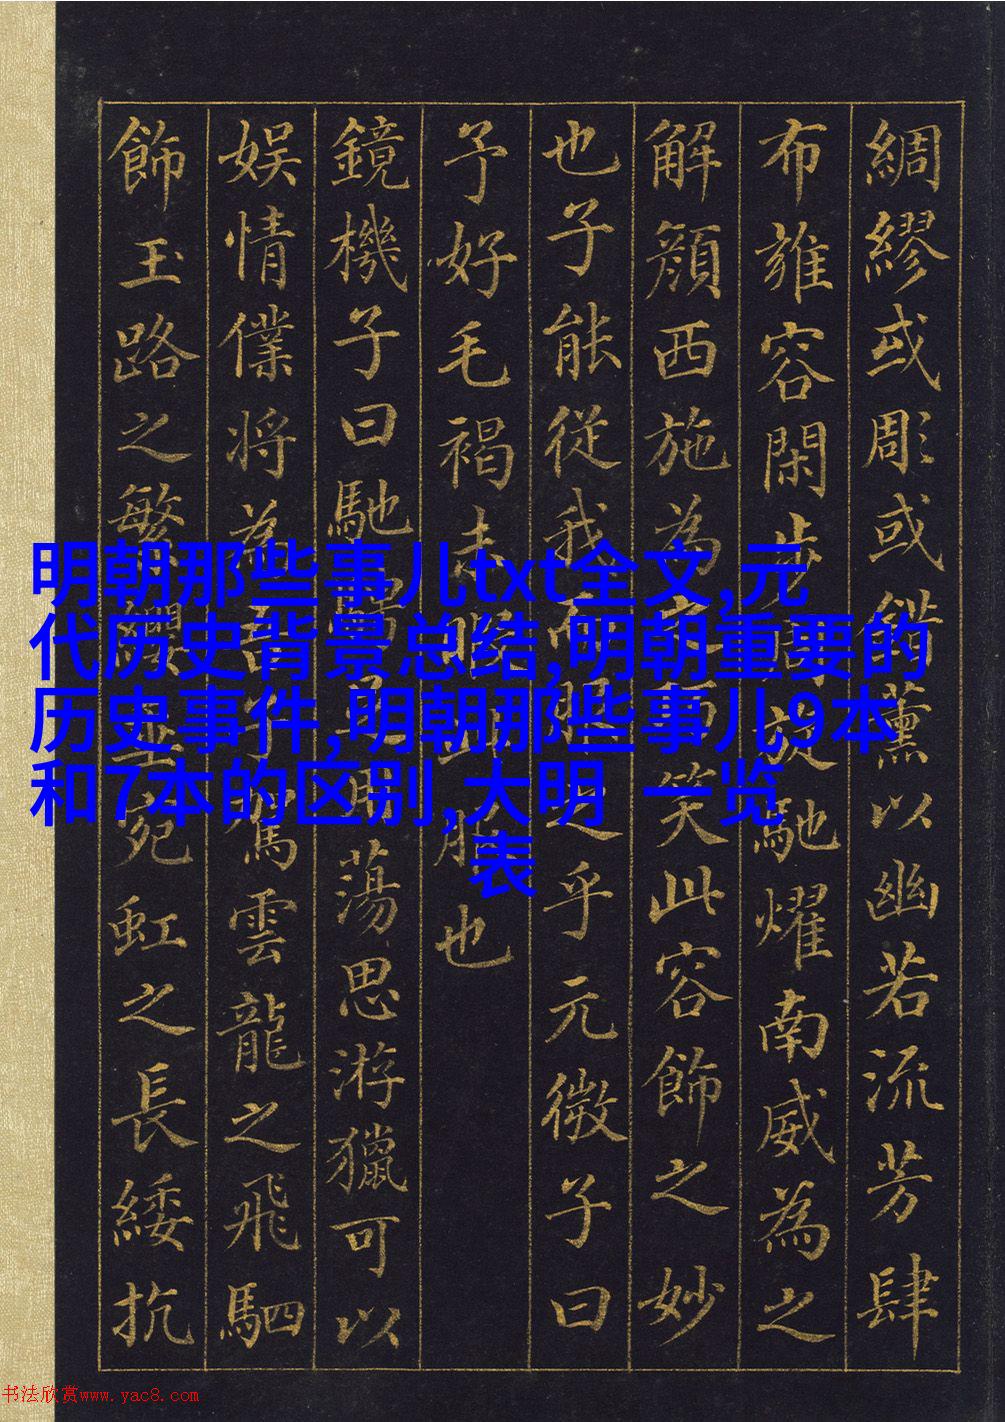 綢繆或彫或錯薰以幽若流芳肆
布雍容閑步周旋馳耀南威為之
解顏西施為之巧笑此容飾之妙
也子能從我而服之乎元微子曰
予好毛褐未暇此服也
鏡機子曰馳騁足用蕩思游獵可以
娛情僕將為吾子駕雲龍之飛駟
飾玉路之繁纓垂宛虹之長緌抗
明朝那些事儿txt全文,元
代历史背景总结,明朝重要的
历史事件,明朝那些事儿9本
和7本的区别,大明 一览
表
书法欣赏www.yac8.com